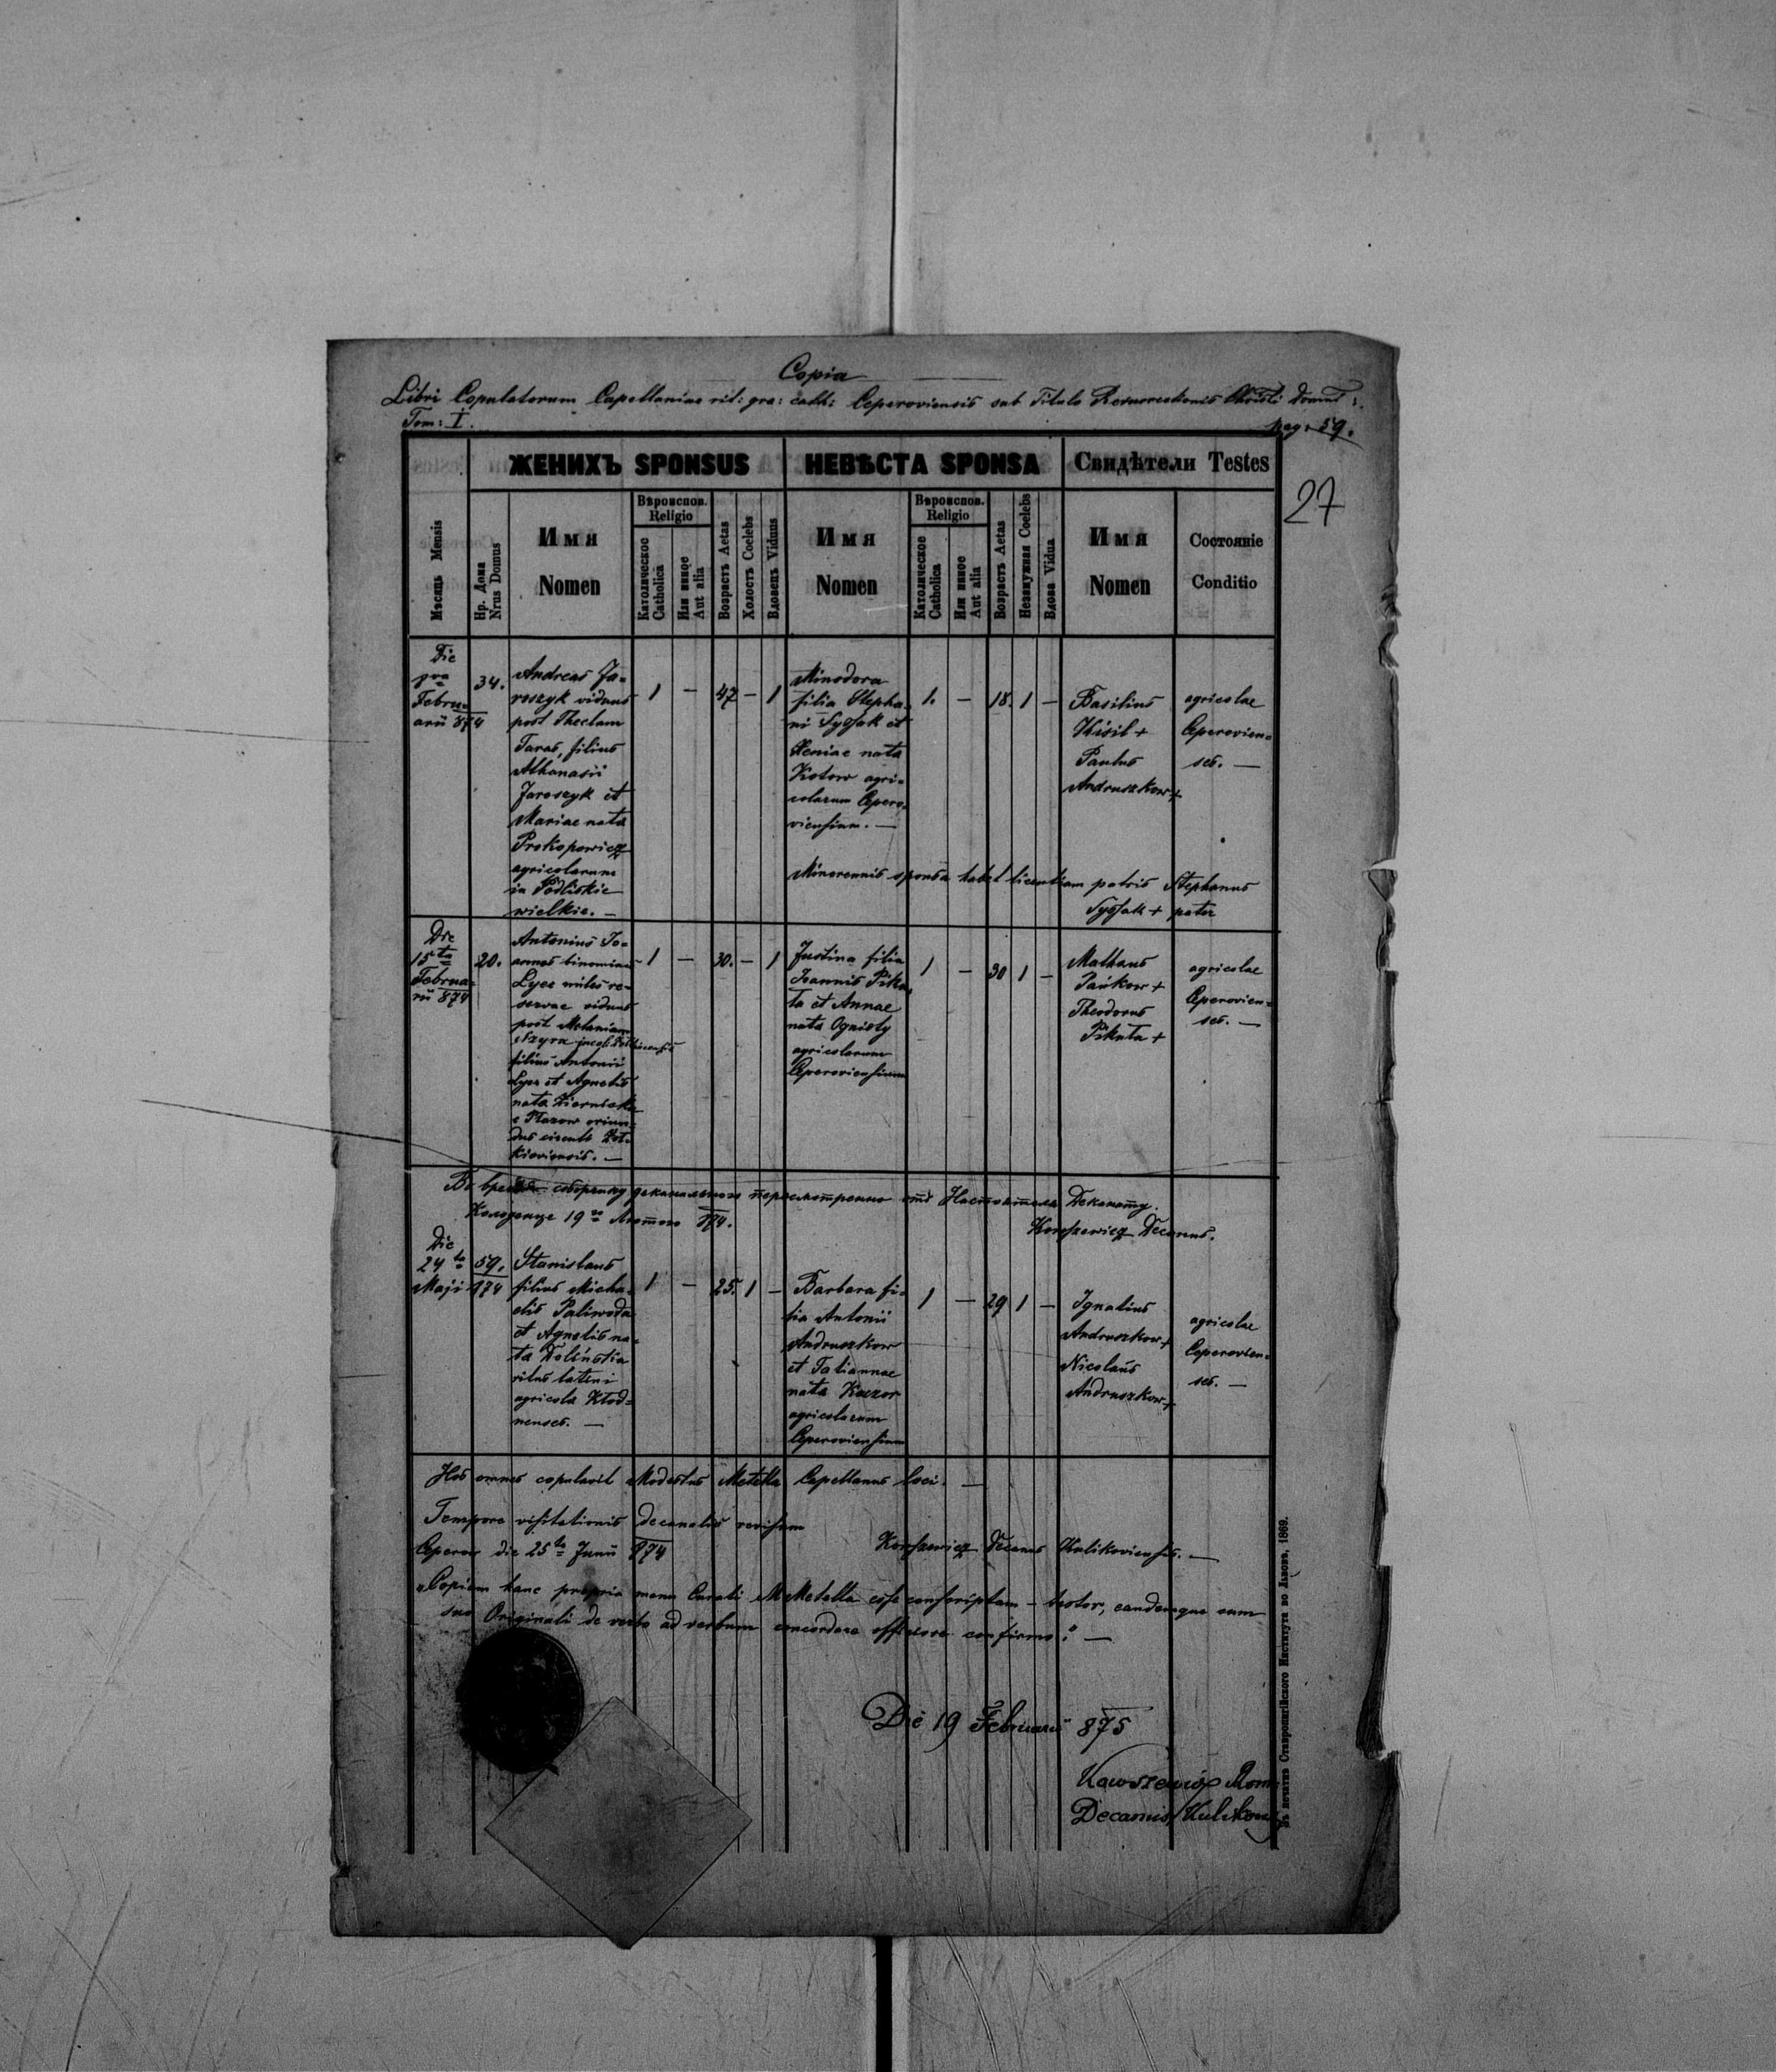 Copia
Libri Copulatorum Capellaniae rit: gra: cath: Ceperoviensis sub Titulo Resurrectionis Christi Domini
Tom: I.
pag: 59.
27
ЖЕНИХЪ SPONSUS
НЕВѢСТА SPONSA
Свидѣтели Testes
Мѣсяць Mensis
Нр. Дома
Nrus Domus
Имя
Nomen
Вѣроиспов.
Religio
Католическое
Catholica
Или инное
Aut alia
Возрасть Aetas
Холостъ Coelebs
Вдовецъ Viduus
Имя
Nomen
Вѣроиспов.
Religio
Католическое
Catholica
Или инное
Aut alia
Возрасть Aetas
Незамужная Coelebs
Вдова Vidua
Имя
Nomen
Состояніе
Conditio
Die
Febru-
arii 874
34.
Andreas Ja-
roszyk viduus
post Theclam
Taras, filius
Athanasii
Jaroszyk et
Mariae nata
Prokopowicz
agricolarum
in Podliskie
wielkie. —
1 — 47 — 1
Minodora
filia Stepha-
ni Syssak et
Xeniae nata
Kotow agri-
colarum Cepero-
viensium. —
1. — 18. 1 —
Basilius
Kisil +
Paulus
Andruszkow +
agricolae
Ceperovien=
ses. —
Minorennis sponsa habet licentiam patris Stephanus
Syssak + pater
Die
15ta
Februa-
rii 874
20.
Antonius Jo-
annes binominis
Lyez miles re-
servae viduus
post Melaniam
filius Antonii
Lyez et Agnetis
nata
1 — 30. — 1
Justina filia
Joannis Piku-
ta et Annae
nata Ognisty
agricolarum
Ceperoviensium
1 — 30 1 —
Mathaus
Pańkow +
Theodorus
Pikuta +
agricolae
Ceperovien=
ses. —
19го Лютого 874.
Decanus.
Die
24ta
Maji 874
59.
Stanislaus
filius Micha-
elis Paliwoda
et Agnetis na-
ta
ritus latini
agricola Kłod=
nenses. —
1 — 25. 1 —
Barbara fi-
lia Antonii
Andruszkow
et Tatiannae
nata Kaczor
agricolarum
Ceperoviensium
1 — 29 1 —
Ignatius
Andruszkow +
Nicolaus
Andruszkow +
agricolae
Ceperovien=
ses. —
Hos omnes copulavit Modestus Metella Capellanus loci. —
Tempore visitationis decanalis revisum
Ceperow die 25ta Junii 874
Decanus Kulikoviensis. —
„Copiam hanc propria manu Curati M Metella esse conscriptam – testor, eandemque cum
suo Originali de verbo ad verbum concordare officiose confirmo." —
Die 19 Februarii 875
Decanus Kulikow
Въ печатнѣ Ставропигійского Института во Львовѣ, 1869.